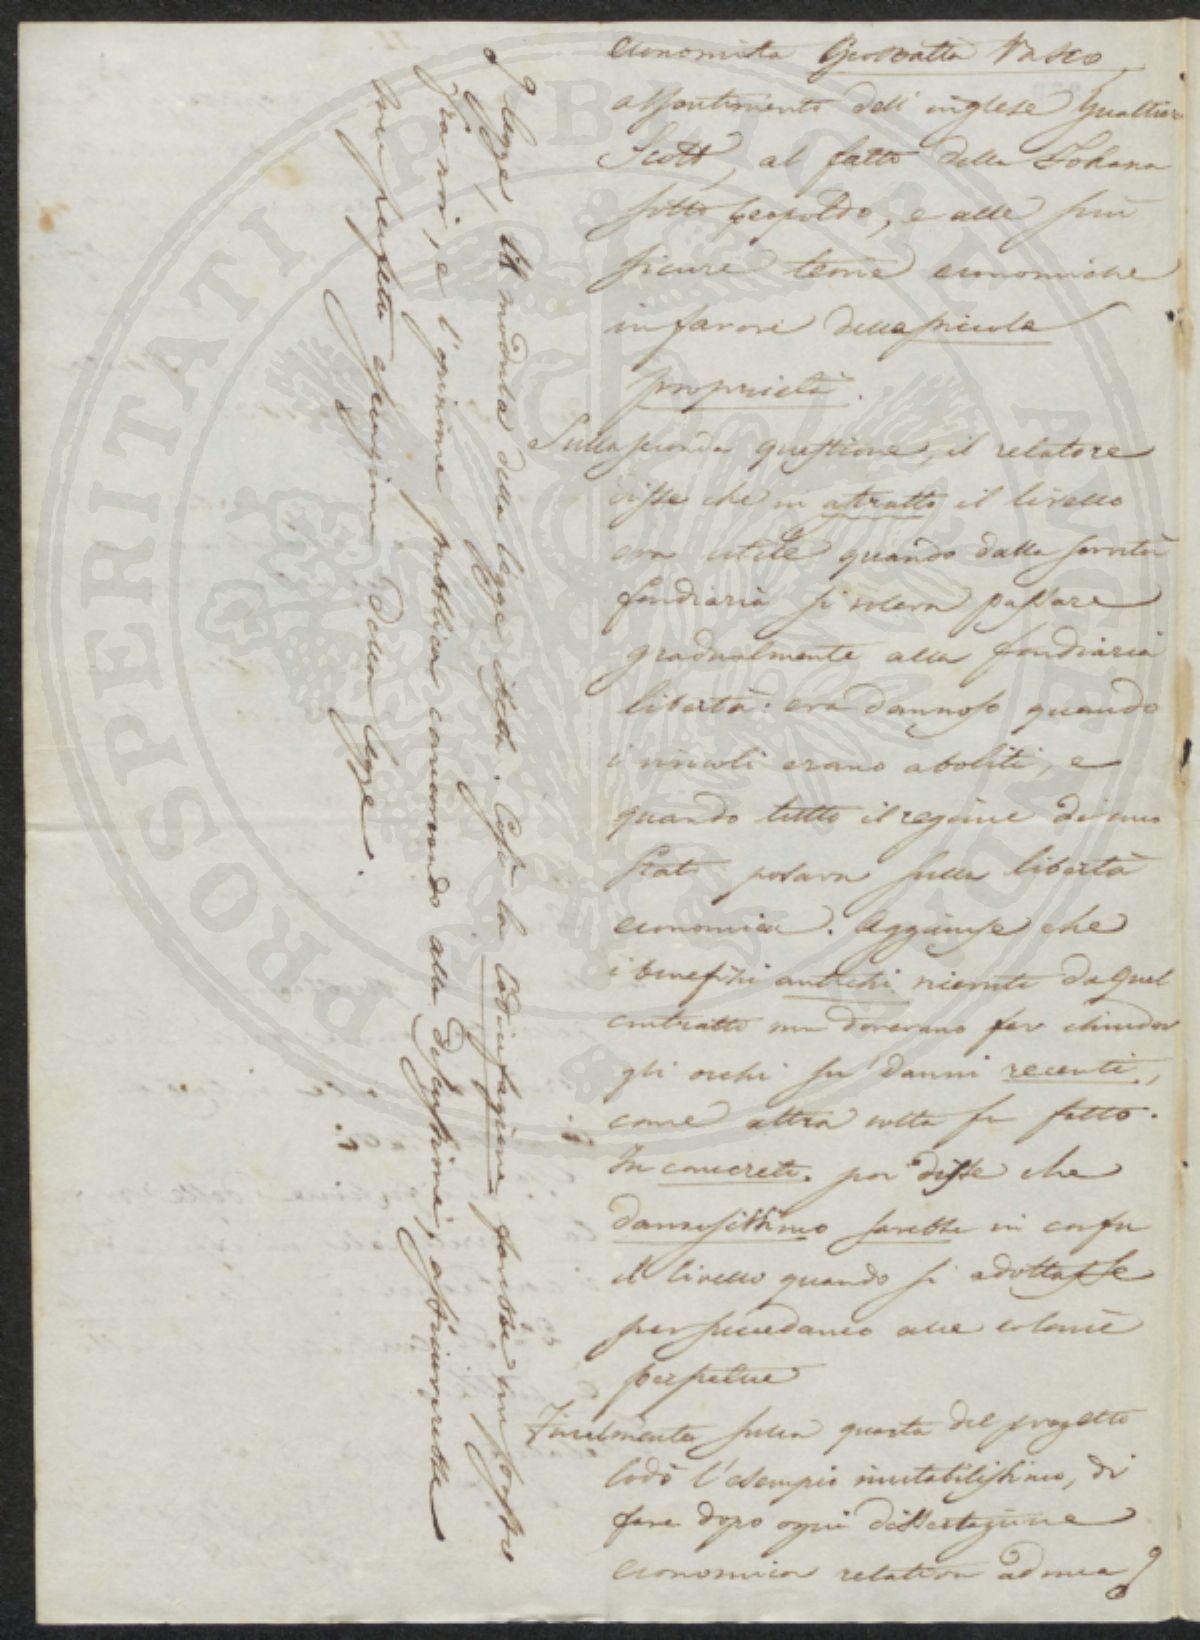 economista Giovbatta Vasco
all'ardimento dell'inglese Gualtiero
Scott, al fatto della Toskana
sotto Leopoldo, e alle più
sicure teorie economiche
in favore della piccola
proprietà.
Sulla seconda questione, il relatore
disse che in astratto il livello
era utile quando dalla servitù
fondiaria si voleva passare
gradualmente alla fondiaria
libertà: era dannoso quando
i vincoli erano aboliti, e
quando tutto il regime di uno
Stato posava sulla libertà
economica. Aggiunse che
i benefizi antichi ricevuti da quel
contratto non dovevano far chiuder
gli occhi su' danni recenti,
come altra volta fu fatto.
In concreto poi disse che
dannosissimo sarebbe in Corfu
il livello quando si adottasse
per succedaneo alle colonie
perpetue
Finalmente sulla quarta del progetto
lodò l'esempio imitabilissimo, di
fare dopo ogni dissertazione
economica relativa ad una
legge, il modula della legge stessa. Così la Codificazione, sarebbe un sogno
fra noi, e l'opinione pubblica concorrendo alla discussione, assicurerebbe
una perfetta esecuzione della legge.
PROSPERITATI PUBLICAE AUGENDAE